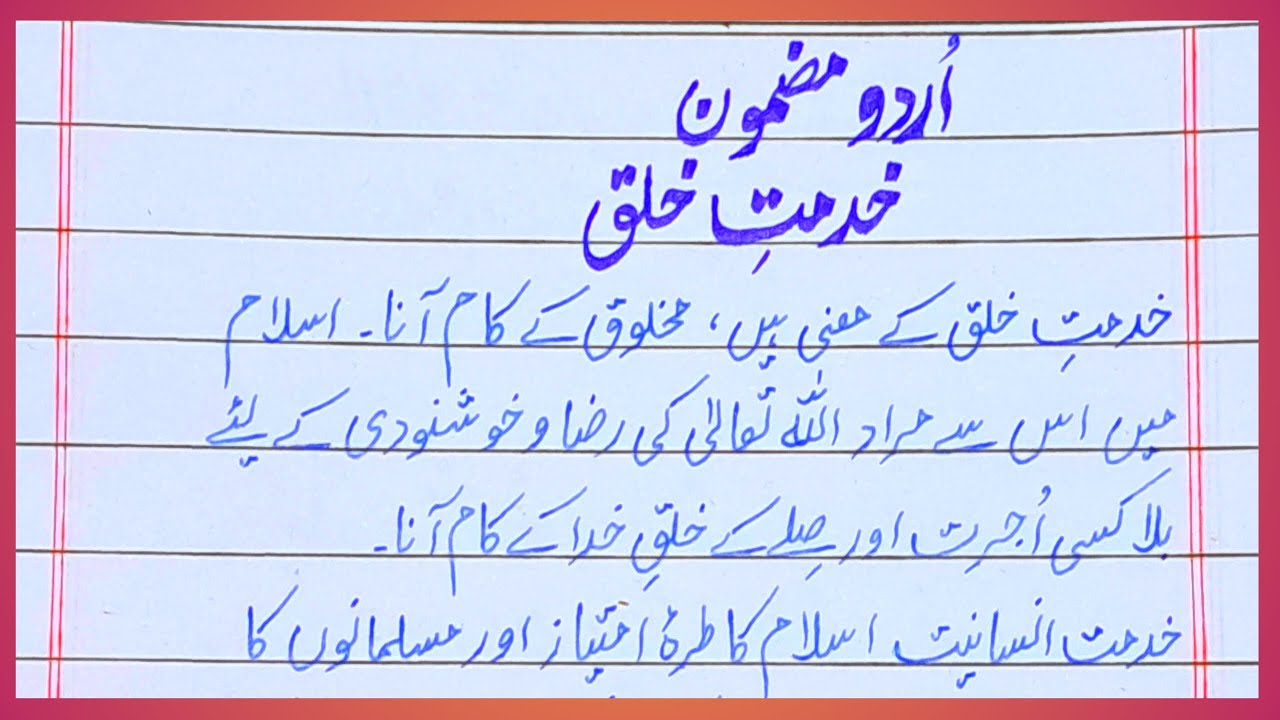 اُردو مضمون
خدمتِ خلق
خدمتِ خلق کے معنی ہیں، مخلوق کے کام آنا۔ اسلام
میں اس سے مراد اللہ تعالیٰ کی رضا و خوشنودی کے لئے
بلا کسی اُجرت اور صِلے کے خلقِ خدا کے کام آنا۔
خدمت انسانیت اسلام کا طرۂ امتیاز اور مسلمانوں کا